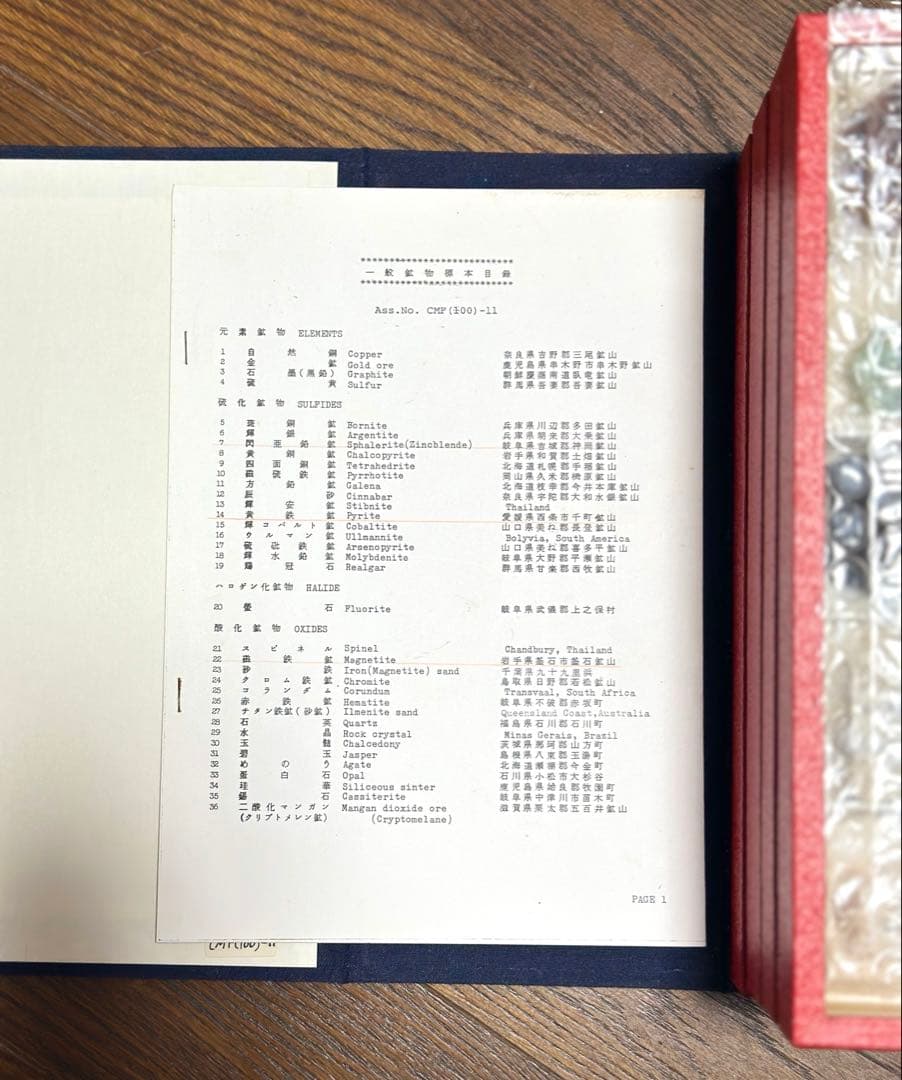 一般鉱物標本目録
Ass.No. CMF(100)-11
元素鉱物 ELEMENTS
1 自然銅 Copper 奈良県吉野郡三尾鉱山
2 金鉱 Gold ore 鹿児島県串木野市串木野鉱山
3 石墨(黒鉛) Graphite 朝鮮慶南道臥竜鉱山
4 硫黄 Sulfur 群馬県吾妻郡吾妻鉱山
硫化鉱物 SULFIDES
5 斑銅鉱 Bornite 兵庫県川辺郡多田鉱山
6 輝銀鉱 Argentite 兵庫県朝来郡大乗鉱山
7 閃亜鉛鉱 Sphalerite(Zincblende) 岐阜県吉城郡神岡鉱山
8 黄銅鉱 Chalcopyrite 岩手県和賀郡土畑鉱山
9 四面銅鉱 Tetrahedrite 北海道札幌郡手稲鉱山
10 磁硫鉄鉱 Pyrrhotite 岡山県久米郡柵原鉱山
11 方鉛鉱 Galena 北海道枝幸郡今井本庫鉱山
12 辰砂 Cinnabar 奈良県宇陀郡大和水銀鉱山
13 輝安鉱 Stibnite Thailand
14 黄鉄鉱 Pyrite 愛媛県西条市千町鉱山
15 輝コバルト鉱 Cobaltite 山口県美ね郡長登鉱山
16 ウルマン鉱 Ullmannite Bolyvia, South America
17 硫砒鉄鉱 Arsenopyrite 山口県美ね郡喜多平鉱山
18 輝水鉛鉱 Molybdenite 岐阜県大野郡平瀬鉱山
19 鶏冠石 Realgar 群馬県甘楽郡西牧鉱山
ハロゲン化鉱物 HALIDE
20 螢石 Fluorite 岐阜県武儀郡上之保村
酸化鉱物 OXIDES
21 スピネル Spinel Chandbury, Thailand
22 磁鉄鉱 Magnetite 岩手県釜石市釜石鉱山
23 砂鉄 Iron(Magnetite) sand 千葉県九十九里浜
24 クロム鉄鉱 Chromite 鳥取県日野郡若松鉱山
25 コランダム Corundum Transvaal, South Africa
26 赤鉄鉱 Hematite 岐阜県不破郡赤坂町
27 チタン鉄鉱(砂鉱) Ilmenite sand Queensland Coast,Australia
28 石英 Quartz 福島県石川郡石川町
29 水晶 Rock crystal Minas Gerais, Brazil
30 玉髄 Chalcedony 茨城県那珂郡山方町
31 碧玉 Jasper 島根県八束郡玉湯町
32 めのう Agate 北海道瀬棚郡今金町
33 蛋白石 Opal 石川県小松市大杉谷
34 珪華 Siliceous sinter 鹿児島県姶良郡牧園町
35 錫石 Cassiterite 岐阜県中津川市苗木町
36 二酸化マンガン Mangan dioxide ore 滋賀県栗太郡五百井鉱山
(クリプトメレン鉱) (Cryptomelane)
PAGE 1
CMF(100)-11